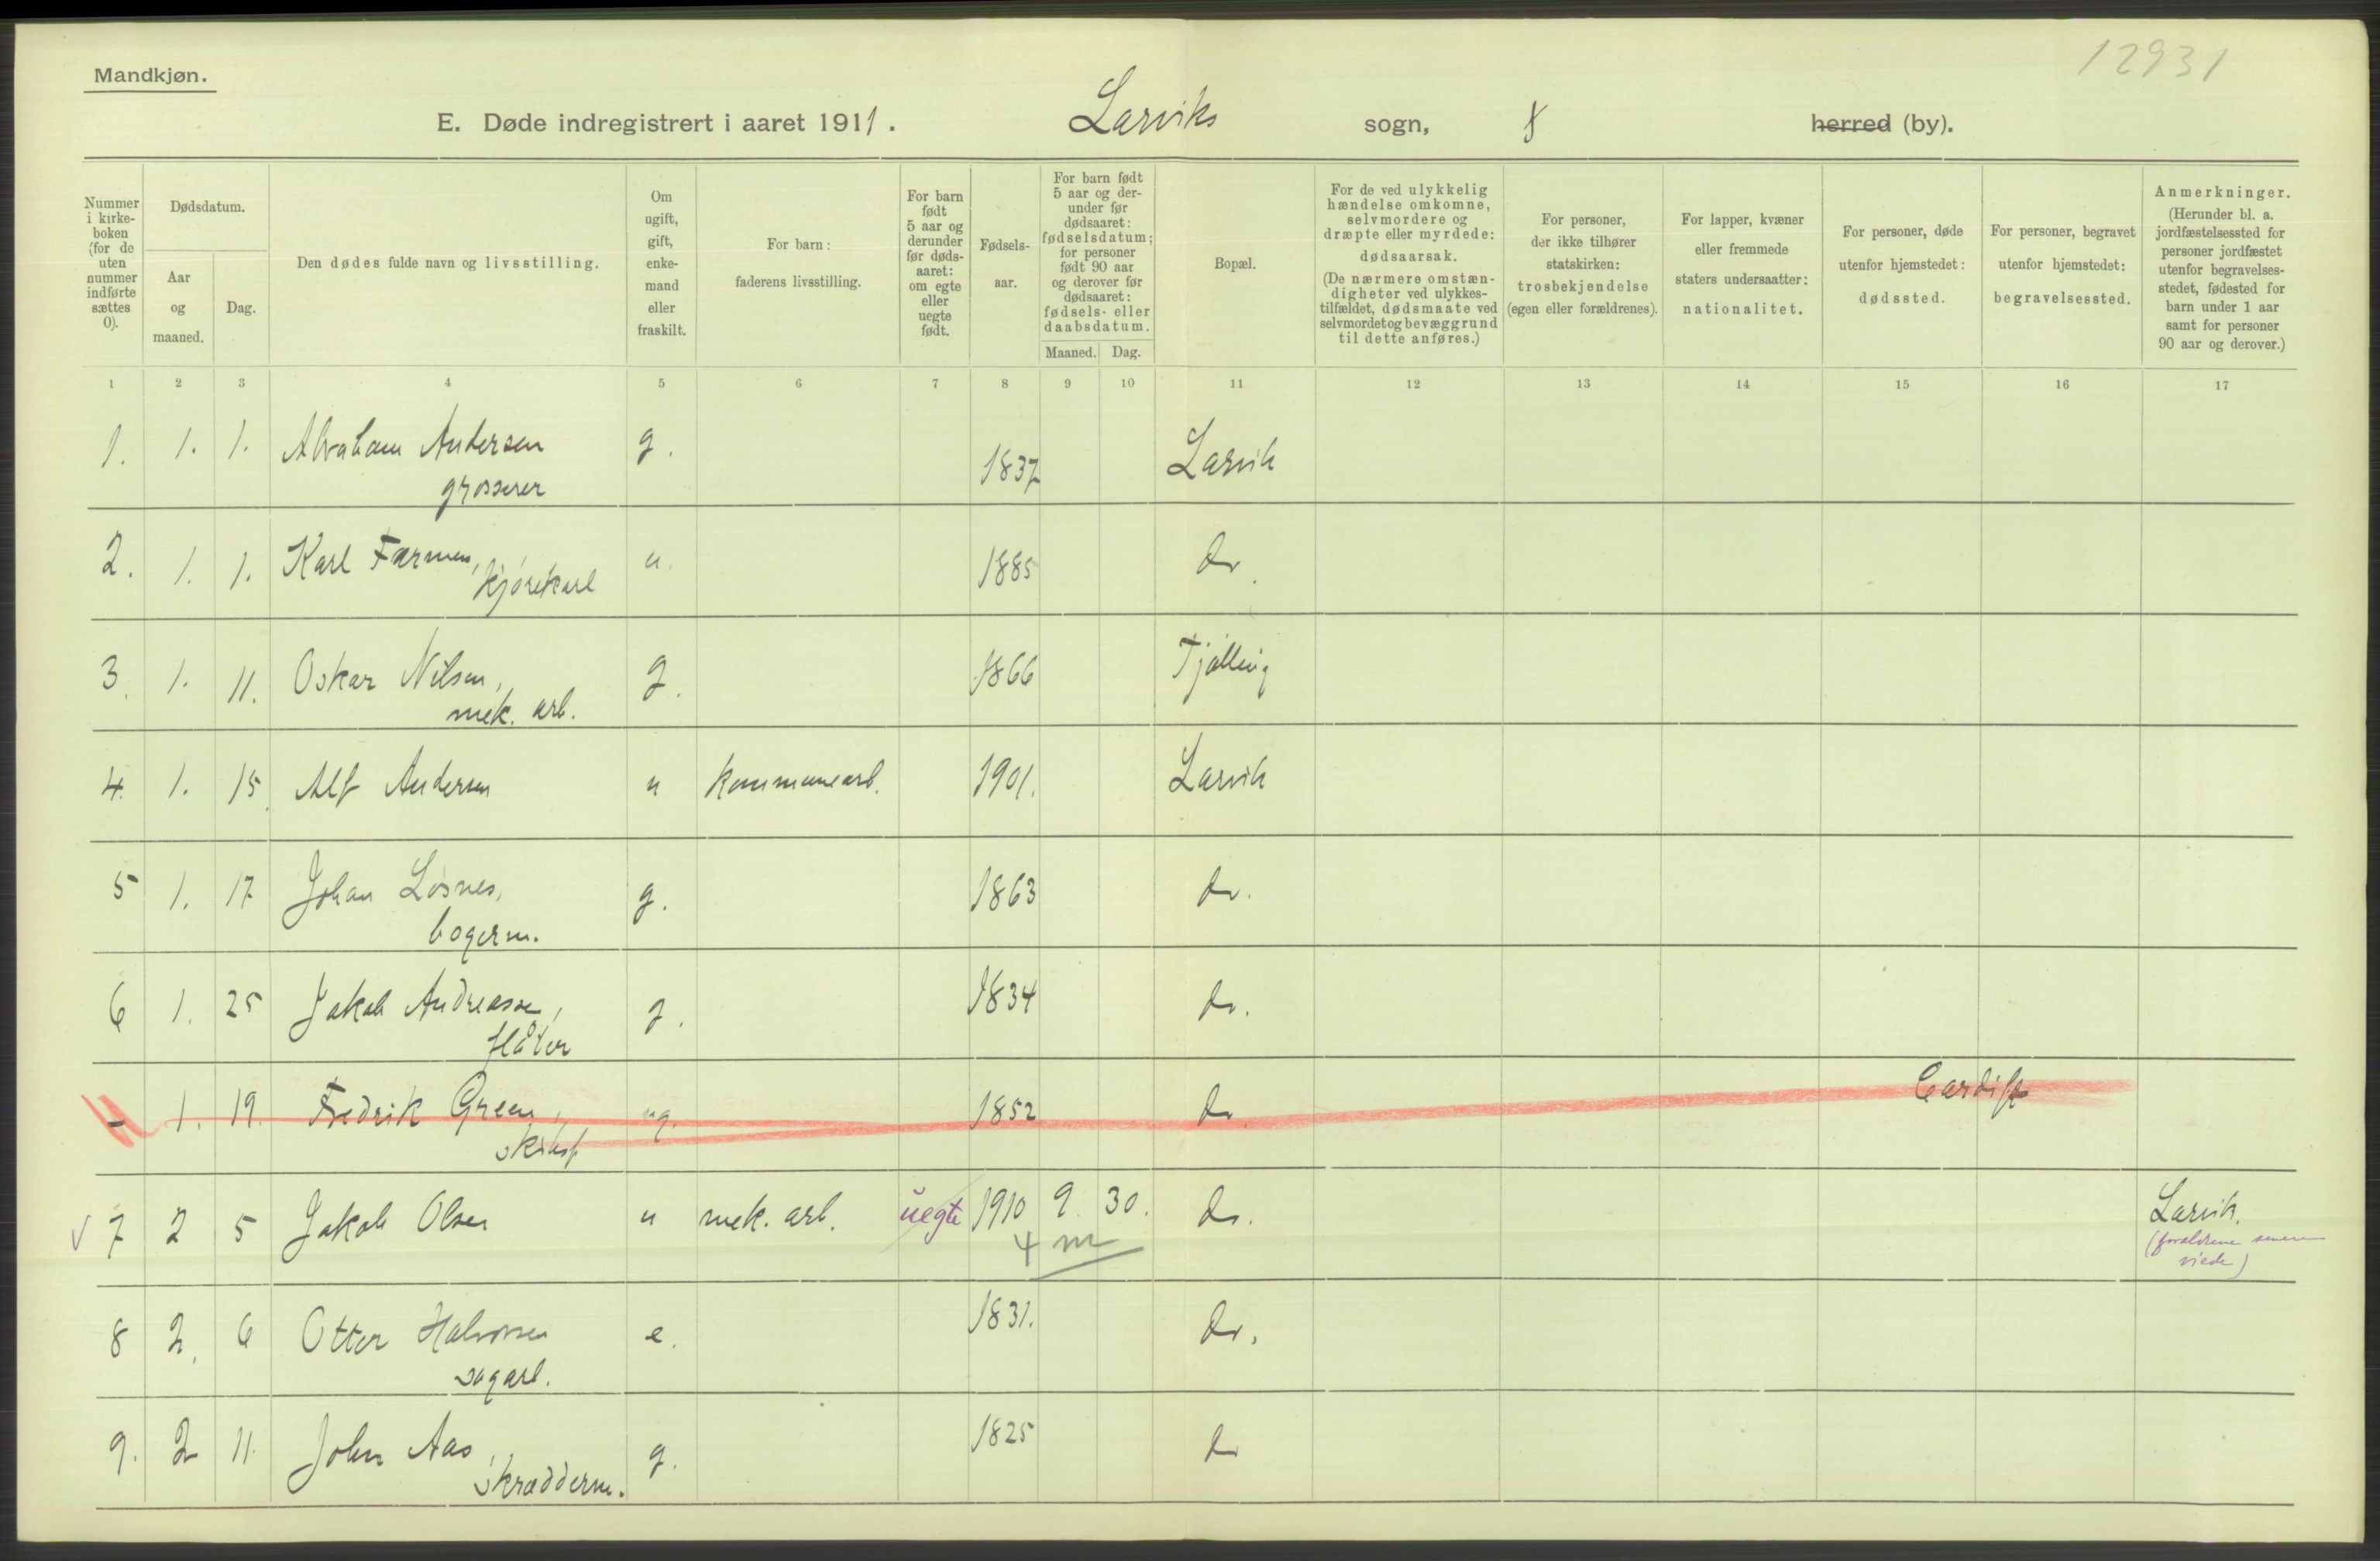 12931
Mandkjøn.
E. Døde indregistrert i aaret 1911. Larviks sogn, herred (by).
Nummer i kirke- boken (for de uten nummer indførte sættes 0).
Dødsdatum.
Aar og maaned.
Dag.
Den dødes fulde navn og livsstilling.
Om ugift, gift, enke- mand eller fraskilt.
For barn: faderens livsstilling.
For barn født 5 aar og derunder før døds- aaret: om egte eller uegte født.
Fødsels- aar.
For barn født 5 aar og der- under før dødsaaret: fødselsdatum; for personer født 90 aar og derover før dødsaaret: fødsels- eller daabsdatum.
Maaned. Dag.
Bopæl.
For de ved ulykkelig hændelse omkomne, selvmordere og dræpte eller myrdede: dødsaarsak. (De nærmere omstæn- digheter ved ulykkes- tilfældet, dødsmaate ved selvmord et og bevæggrund til dette anføres.)
For personer, der ikke tilhører statskirken: trosbekjendelse (egen eller forældrenes).
For lapper, kvæner eller fremmede staters undersaatter: nationalitet.
For personer, døde utenfor hjemstedet: dødssted.
For personer, begravet utenfor hjemstedet: begravelsessted.
Anmerkninger. (Herunder bl. a. jordfæstelsessted for personer jordfæstet utenfor begravelses- stedet, fødested for barn under 1 aar samt for personer 90 aar og derover.)
1 2 3 4 5 6 7 8 9 10 11 12 13 14 15 16 17
1. 1. 1. Abraham Andersen g. 1837 Larvik
grosserer
2. 1. 1. Karl Farmen, u. 1885 do.
kjørekarl
3. 1. 11. Oskar Nilsen, g. 1866 Tjølling
mek. arb.
4. 1. 15. Alf Andersen u kommunearb. 1901. Larvik
5 1. 17 Johan Løsnes, g. 1863 do.
bagerm.
6 1. 25 Jakob Andreassen, g. 1834 do.
flåter
1. 19. Fredrik Green, ug. 1852 do. Cardiff
v 7 2 5 Jakob Olsen u mek. arb. uegte 1910 9. 30. do. Larvik.
4 m (forældrene senere
viede)
8 2. 6 Otter Halvorsen e. 1831. do.
sagarb.
9. 2 11. John Aas, g. 1825 do
skrædderm.